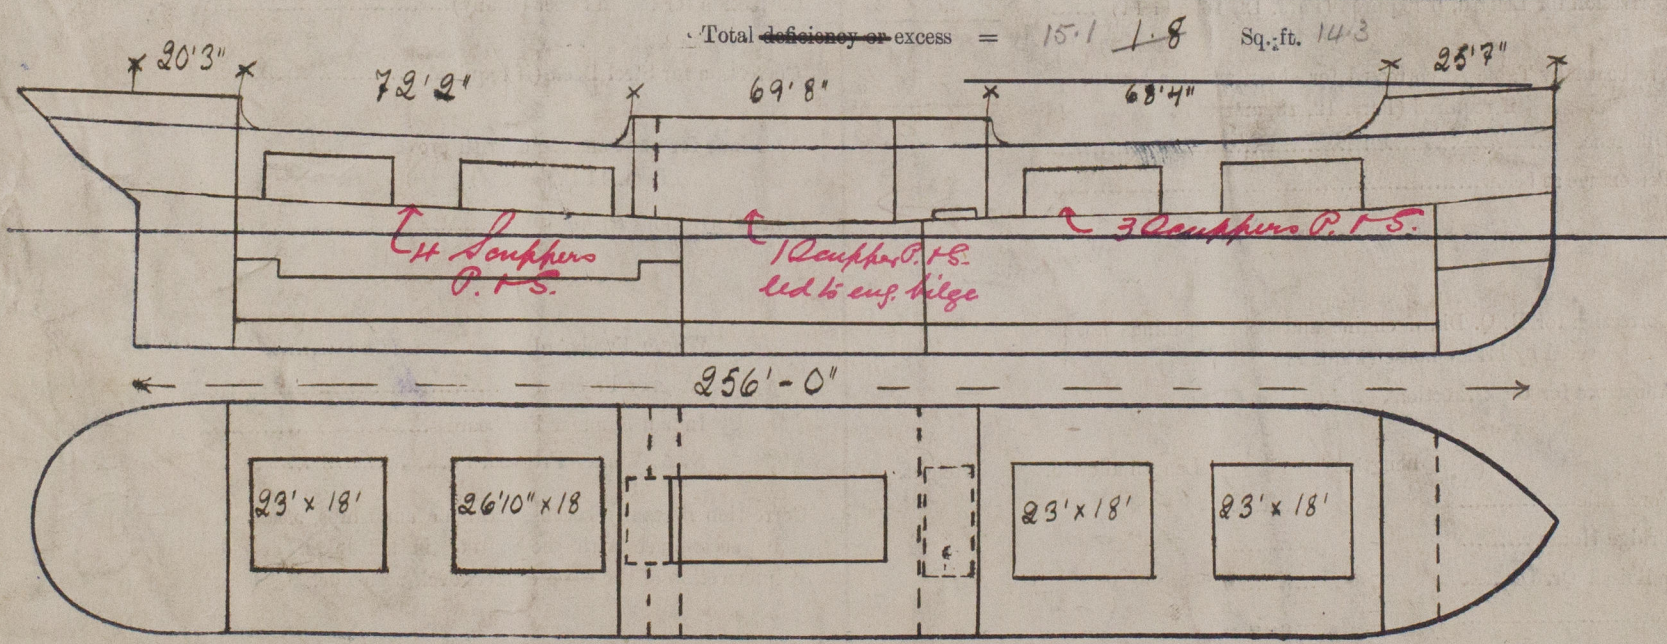 Total deficiency or excess = 15.1 1.8 Sq. ft. 14.3
20'3" 72'2" 69'8" 68'4" 25'7"
4 Scuppers
P. & S.
1 Scupper P. & S.
led to eng. bilge
3 Scuppers P. & S.
256'-0"
23' x 18' 26'10" x 18 23' x 18' 23' x 18'